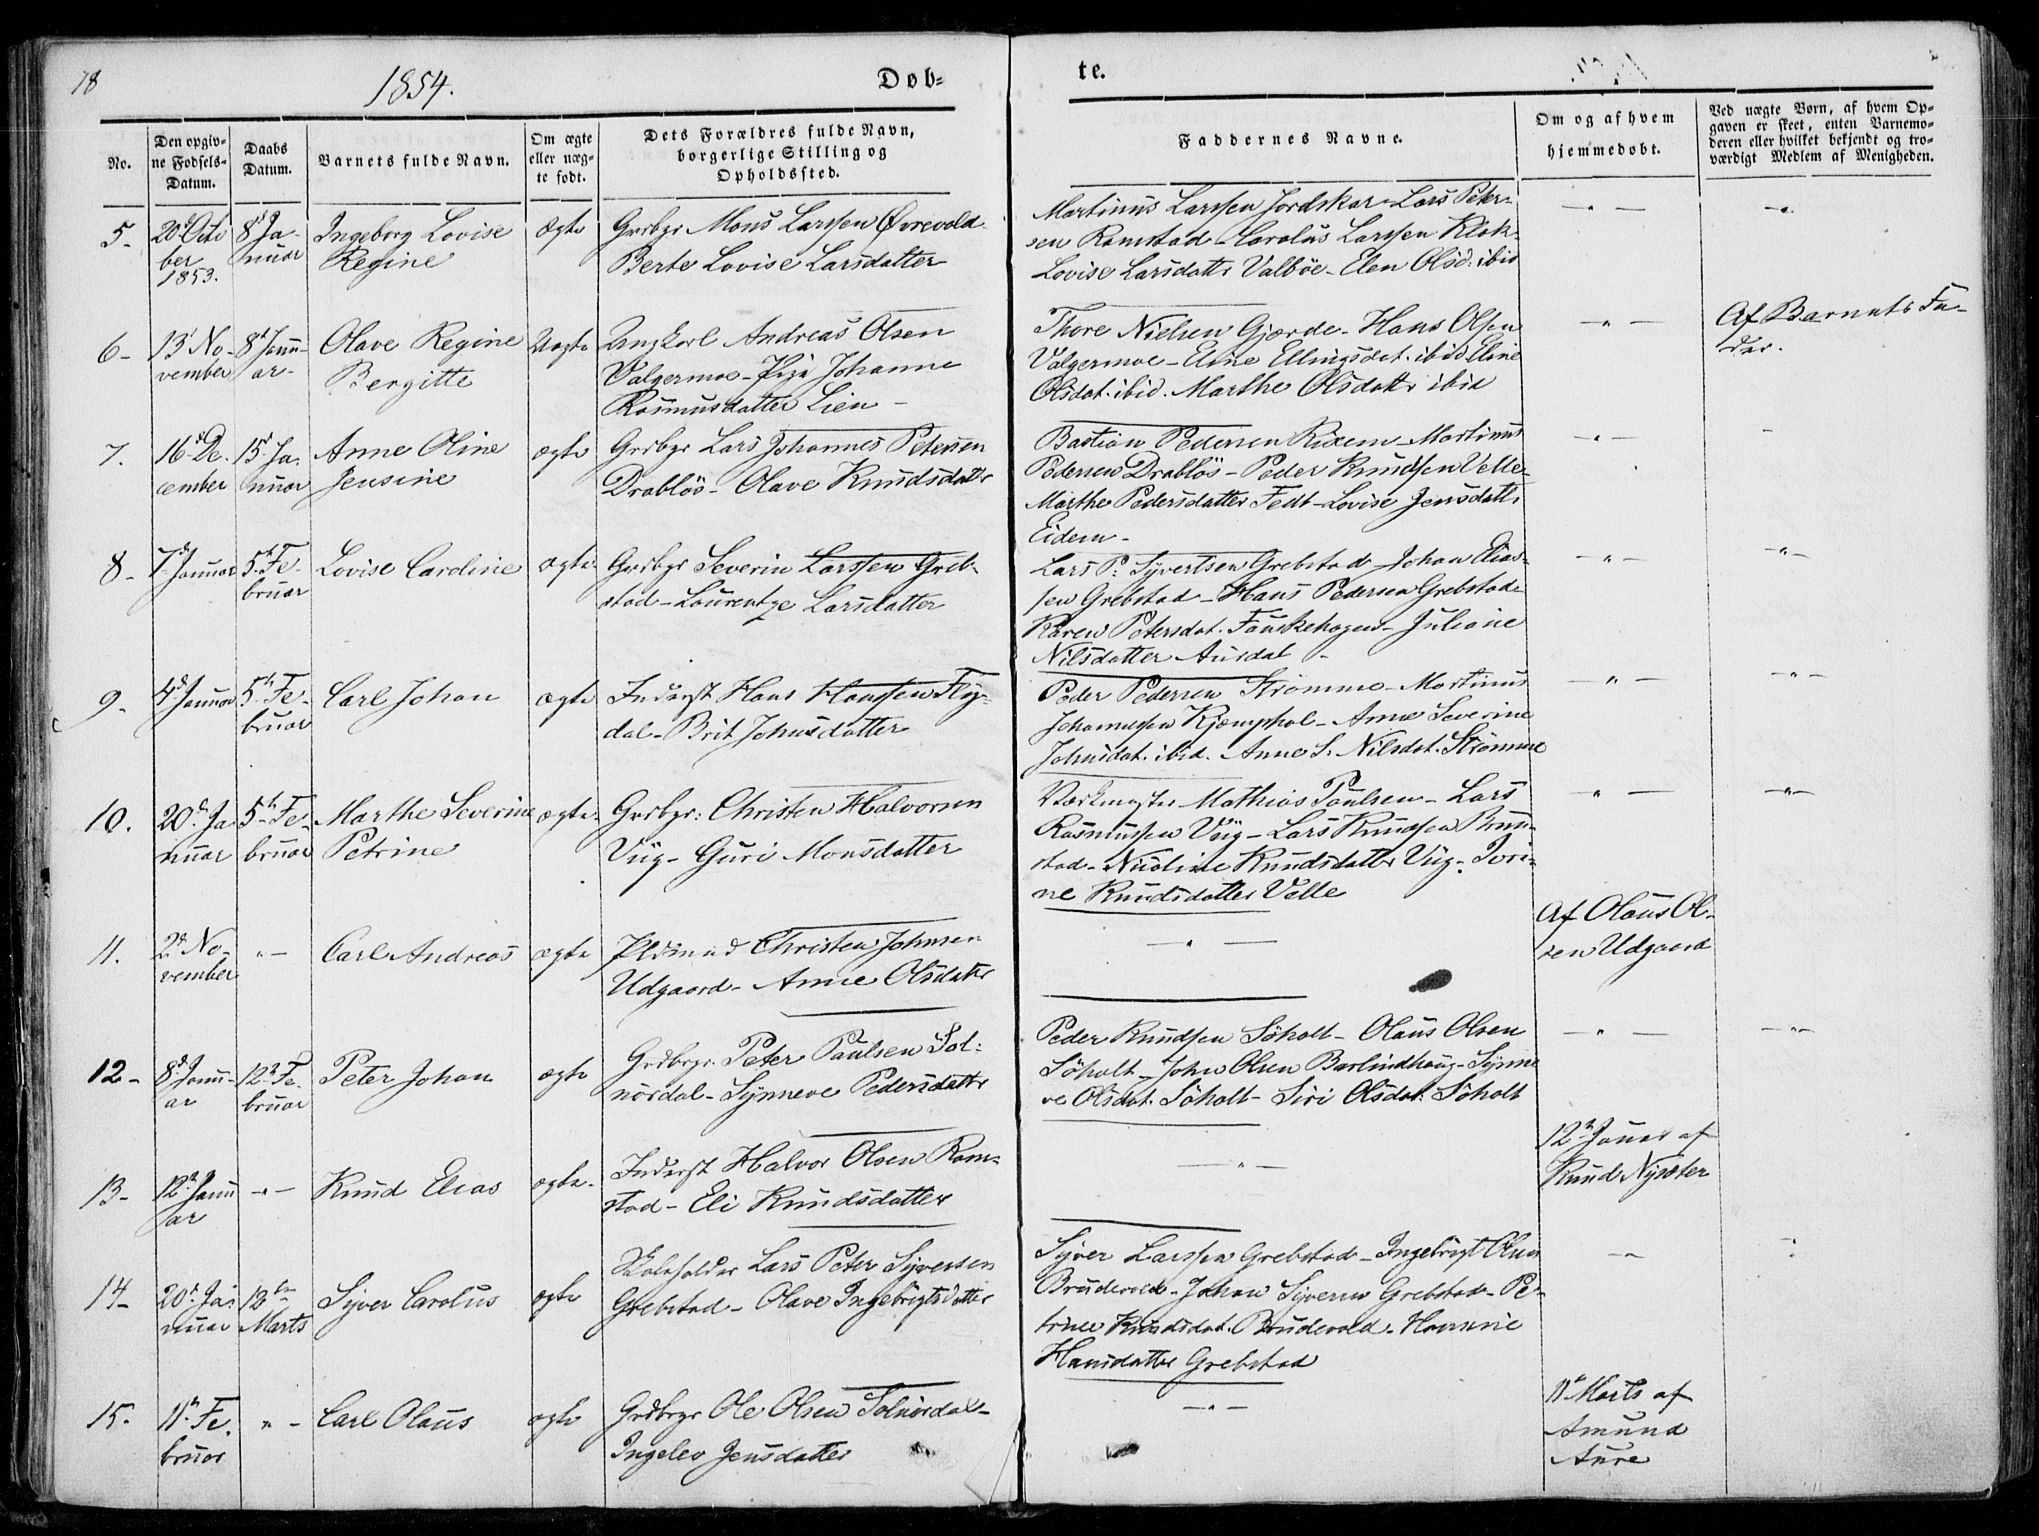 78
1854.
Døb-
te.
No.
Den opgiv-
ne Fødsels-
Datum.
Daabs
Datum.
Barnets fulde Navn.
Om ægte
eller uæg-
te født.
Dets Forældres fulde Navn,
borgerlige Stilling og
Opholdssted.
Faddernes Navne.
Om og af hvem
hjemmedøbt.
Ved uægte Børn, af hvem Op-
gaven er skeet, enten Barnemo-
deren eller hvilket bekjendt og tro-
værdigt Medlem af Menigheden.
5-
20d Octo
ber
1853.
8d Ja-
nuar
Ingeborg Lovise
Regine
Ægte
Grdbgr Mons Larssen Øvrevold
Berte Lovise Larsdatter
Martinus Larssen Jordskar - Lars Peter-
sen Ramstad - Carolus Larssen Klok-
Lovise Larsdattr Valbøe - Elen Olsd. ibid
- " -
- " -
6-
13d No-
vember
8d Janu-
ar-
Olave Regine
Bergitte
Uægte
Ungkarl Andreas Olsen
Valgermoe - Pige Johanne
Rasmusdatter Lien -
Thore Nielsen Gjærde - Hans Olsen
Valgermoe - Eline Ellingsdat. ibid Eline
Olsdat. ibid. Marthe Olsdattr ibid
- " -
Af Barnets Fa-
der.
7.
16d De-
cember
15d Ja-
nuar
Anne Oline
Jensine
ægte
Grdbgr Lars Johannes Petersen
Drabløs - Olave Knudsdattr
Bastian Pedersen Rixem - Martinus
Pedersen Drabløs - Peder Knudsen Velle-
Marthe Pedersdatter Fedt - Lovise Jensdattr
Eidem -
- " -
-
8-
7d Januar
5te Fe-
bruar
Lovise Caroline
ægte
Grdbgr Severin Larssen Greb-
stad - Laurentze Larsdatter
Lars P: Syvertsen Grebstad - Johan Elias-
sen Grebstad - Hans Pedersen Grebstad-
Karen Petersdat. Fauskehagen - Juliane
Nilsdatter Aursdal -
- " -
- " -
9-
4d Januar
5te Fe-
bruar
Carl Johan
ægte
Inderst Hans Hanssen Fly-
dal - Brit Johnsdatter
Peder Pedersen Strømme - Martinus
Johannessen Kjemphol - Anne Severine
Johnsdat. ibid. Anne S. Nilsdat. Strømme
- " -
- " -
10.
20d Ja
nuar
5te Fe-
bruar
Marthe Severine
Petrine
ægte
Grdbgr: Christen Halvorsen
Viig - Guri Monsdatter
Værkmester Mathias Paulsen - Lars
Rasmussen Viig - Lars Knudsen Brun-
stad - Nicoline Knudsdatter Viig - Jori-
ne Knudsdatter Velle
- " -
- " -
11.
2d No-
vember
" -
Carl Andreas
ægte
Pldsmnd Christen Johnsen
Udgaard - Anne Olsdattr
- " -
Af Olaus Ol-
sen Udgaard
12-
8d Janu-
ar
12te Fe-
bruar
Peter Johan
ægte
Grdbrgr Peter Paulsen Sol-
nørdal - Synneve Pedersdattr
Peder Knudsen Søholt - Olaus Olsen
Søholt - John Olsen Barlindhaug - Synne
ve Olsdat. Søholt - Siri Olsdat. Søholt
- " -
- " -
13-
12te Janu
ar
- " -
Knud Elias
ægte
Inderst Halvor Olsen Ram-
stad - Eli Knudsdatter
- " -
12te Januar af
Knud Nysæter
14-
20d Ja-
nuar
12te
Marts
Syver Carolus
ægte
Skoleholder Lars Peter Syversen
Grebstad - Olave Ingebrigtsdatter
Syver Larssen Grebstad - Ingebrigt Olsen
Brudevold - Johan Syversen Grebstad - Pe-
trine Knudsdat. Brudevold - Hansine
Hansdatter Grebstad
- " -
15.
11te Fe-
bruar
" -
Carl Olaus
ægte
Grdbrgr Ole Olsen Solnørdal -
Ingelev Jensdatter
- " -
11te Marts af
Amund
Aure